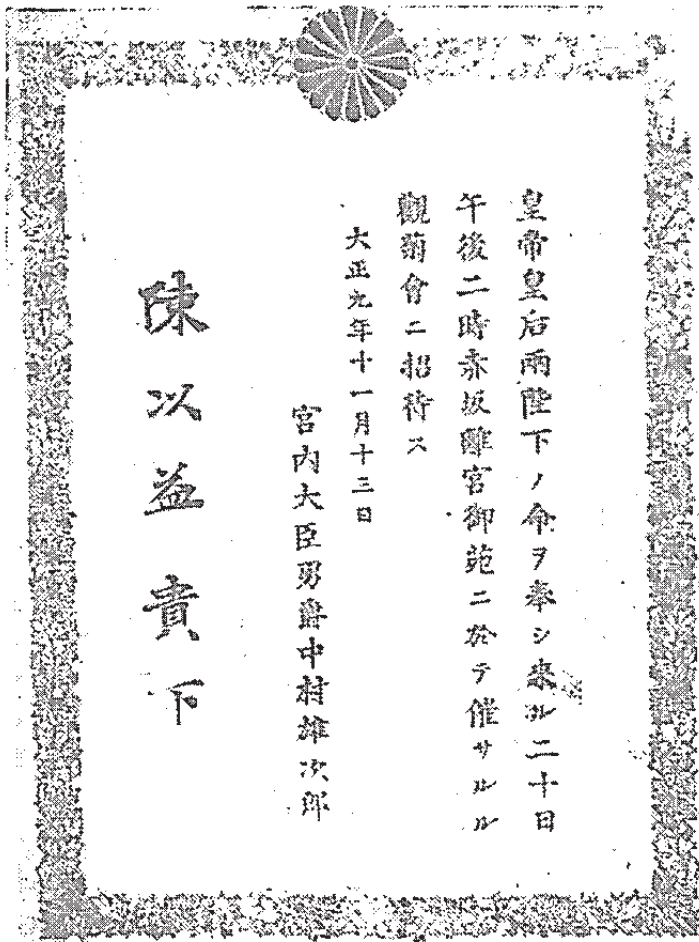 皇帝皇后兩陛下ノ命ヲ奉シ來ル二十日
午後二時赤坂離宮御苑ニ於テ催サルル
觀菊會ニ招待ス
大正九年十一月十三日
宮内大臣男爵中村雄次郎
陳以益貴下